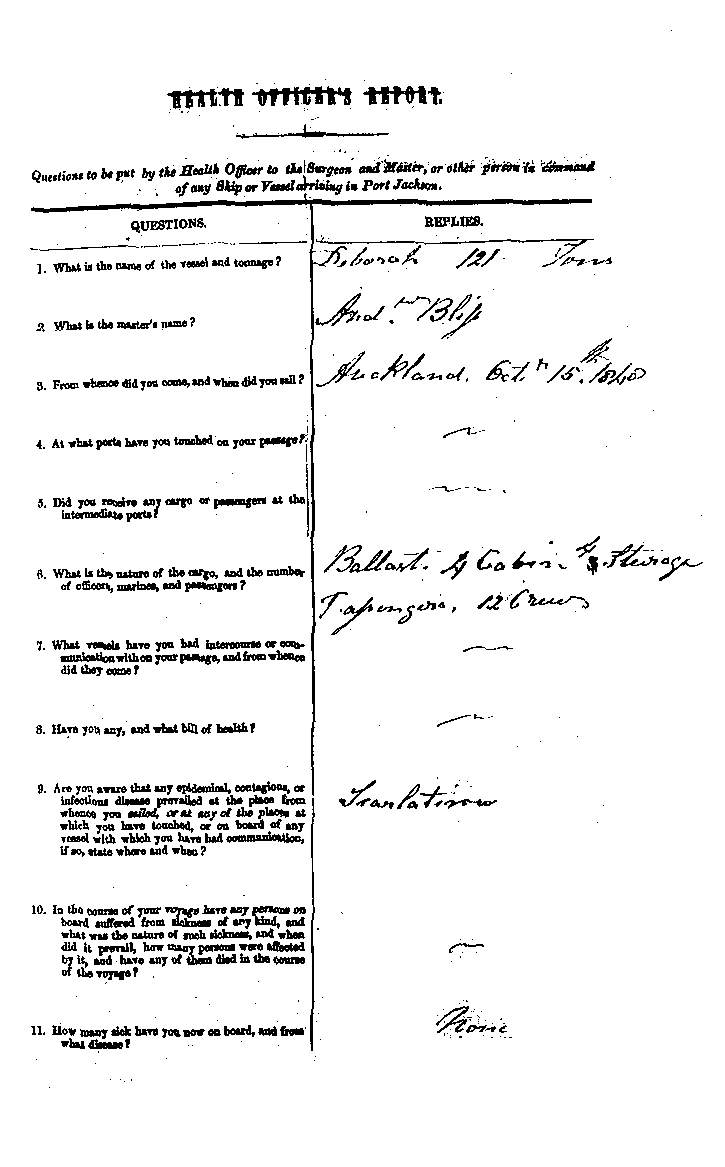 HEALTH OFFICER'S REPORT.
Questions to be put by the Health Officer to the Surgeon and Master, or other person in command
of any Ship or Vessel arriving in Port Jackson.
QUESTIONS. REPLIES.
1. What is the name of the vessel and tonnage? Deborah 121 Tons
2. What is the master's name? And.
3. From whence did you come, and when did you sail? Auckland. Oct. 15th. 1848
4. At what ports have you touched on your passage? ~
5. Did you receive any cargo or passengers at the
intermediate ports?
6. What is the nature of the cargo, and the number Ballast. 4 Cabin. & Steerage
of officers, marines, and passengers? 12 Crew
7. What vessels have you had intercourse or com-
munication with on your passage, and from whence
did they come? ~
8. Have you any, and what bill of health? ~
9. Are you aware that any epidemical, contagious, or
infectious disease prevailed at the place from
whence you sailed, or at any of the places at
which you have touched, or on board of any
vessel with which you have had communication,
if so, state where and when?
10. In the course of your voyage have any persons on
board suffered from sickness of any kind, and
what was the nature of such sickness, and when
did it prevail, how many persons were affected
by it, and have any of them died in the course
of the voyage? ~
11. How many sick have you now on board, and from None
what disease?